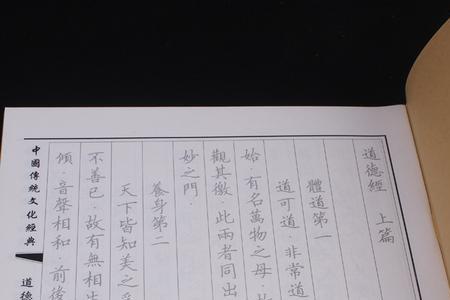 道德經 上篇
體道第一
道可道·非常道
始·有名萬物之母·
觀其徼·此兩者同出
妙之門·
養身第二
天下皆知美之
不善已·故有無相生
傾·音聲相和·前後
中國傳統文化經典
道德